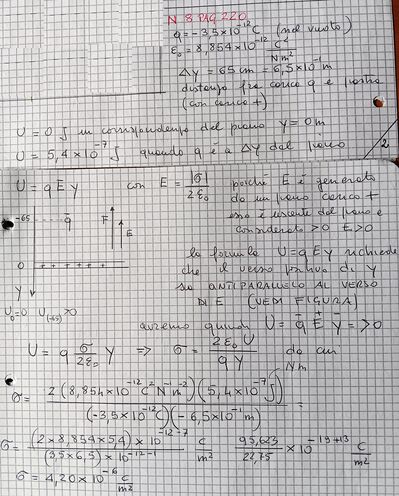 N 8 PAG 220
q = -3,5×10⁻¹² C (nel vuoto)
ε₀ = 8,854×10⁻¹² C²/Nm²
ΔY = 65 cm = 6,5×10⁻¹ m
distanza fra carica q e piastra
(con carica +)
U = 0 J in corrispondenza del piano Y = 0 m
U = 5,4×10⁻⁷ J quando q è a ΔY dal piano
2
U = q E y con E = |σ|/2ε₀ poiché E è generato
da un piano carico +
esso è uscente dal piano e
considerato > 0 E > 0
-65 q̄ F E
0 + + + + + +
Y
la formula U = qEy richiede
che il verso positivo di Y
sia ANTIPARALLELO AL VERSO
DI E (VEDI FIGURA)
U₀=0 U₍₋₆₅₎>0
avremo quindi U = q̄ E⁺ Ȳ => 0
U = q σ/2ε₀ Y => σ = 2ε₀U/qY da cui
Nm
σ = 2(8,854×10⁻¹² C² N⁻¹ m⁻²)(5,4×10⁻⁷ J)/(-3,5×10⁻¹² C)(-6,5×10⁻¹ m) =
σ = (2×8,854×5,4)×10⁻¹²⁻⁷/(3,5×6,5)×10⁻¹²⁻¹ C/m² 95,623/22,75 ×10⁻¹⁹⁺¹³ C/m²
σ = 4,20×10⁻⁶ C/m²